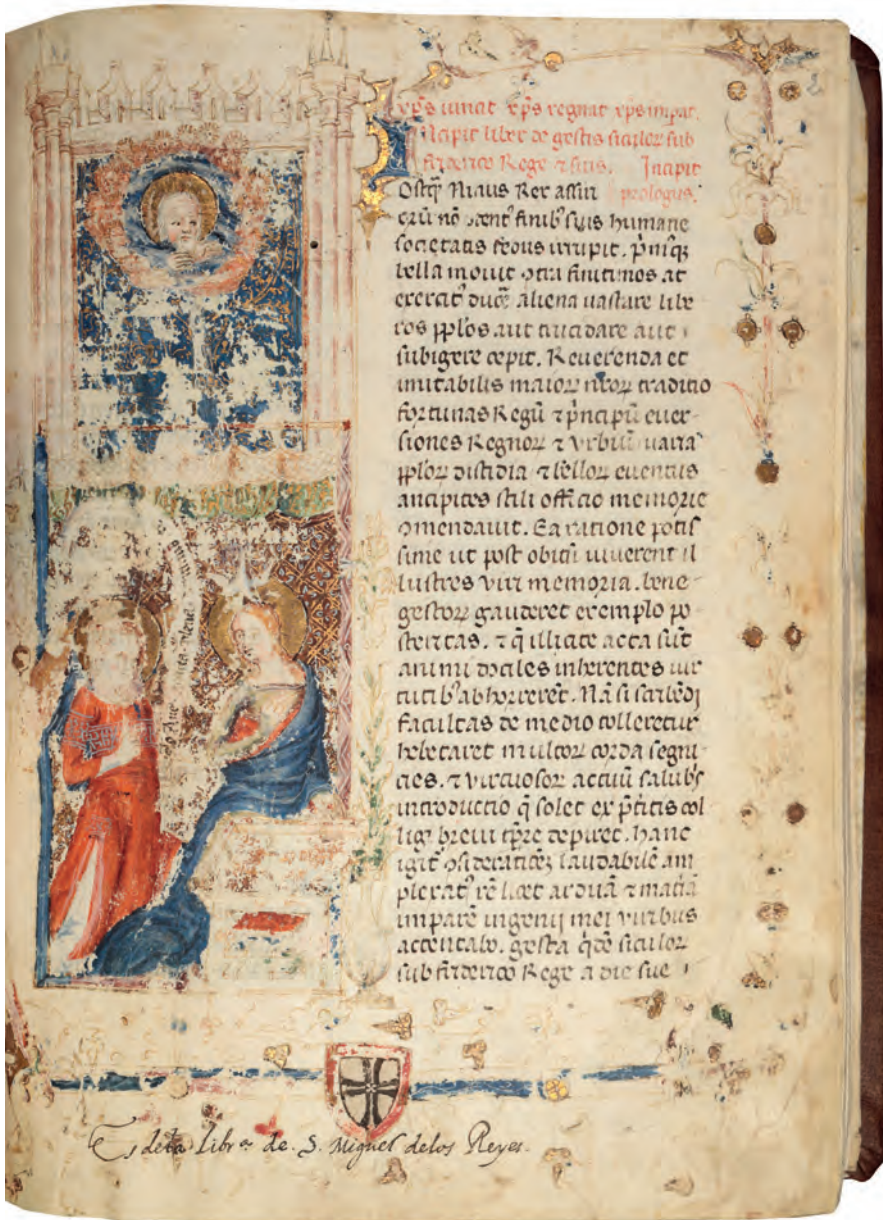 xp̄s uincit xp̄s regnat xp̄s impat.
Incipit liber de gestis siculoꝝ sub
friderico Rege ⁊ suis. Incipit
prologus.
Ostq̄ Ninus Rex assiri
oꝝū nō content' finib' suis humane
societatis fedus irrupit. p̄musq;
bella mouit ꝯtra finitimos at
exercitū ducēs aliena uastare libe
ros pp̄los aut trucidare aut
subigere cepit. Reuerenda et
imitabilis maioꝝ nr̄oꝝ traditio
fortunas Regū ⁊ p̄ncipū euer-
siones Regnoꝝ ⁊ vrbiū uaria
pp̄loꝝ disidia ⁊ belloꝝ euentus
ancipites stili officio memorie
ꝯmendauit. Ea ratione potis
sime ut post obitū uiuerent il
lustres viri memoria. bene
gestoꝝ gauderet exemplo po
steritas. ⁊ q̄ illicite acta sūt
animi dociles inherentes uir
tutib' abhorreret. Nā si scribēdi
facultas de medio tolleretur
hebetaret multoꝝ corda segni
cies. ⁊ virtuosoꝝ actuū salubris
introductio q̄ solet ex p̄teritis col
ligi breui tp̄re depiret. hanc
igit' ꝯsiderationē laudabilē am
plexat' rē licet arduā ⁊ materiā
imparē ingenij mei viribus
attentabo. gesta q̄dē siculoꝝ
sub friderico Rege a die sue
Aue
Es de la Libr.ª de S. Miguel de los Reyes.